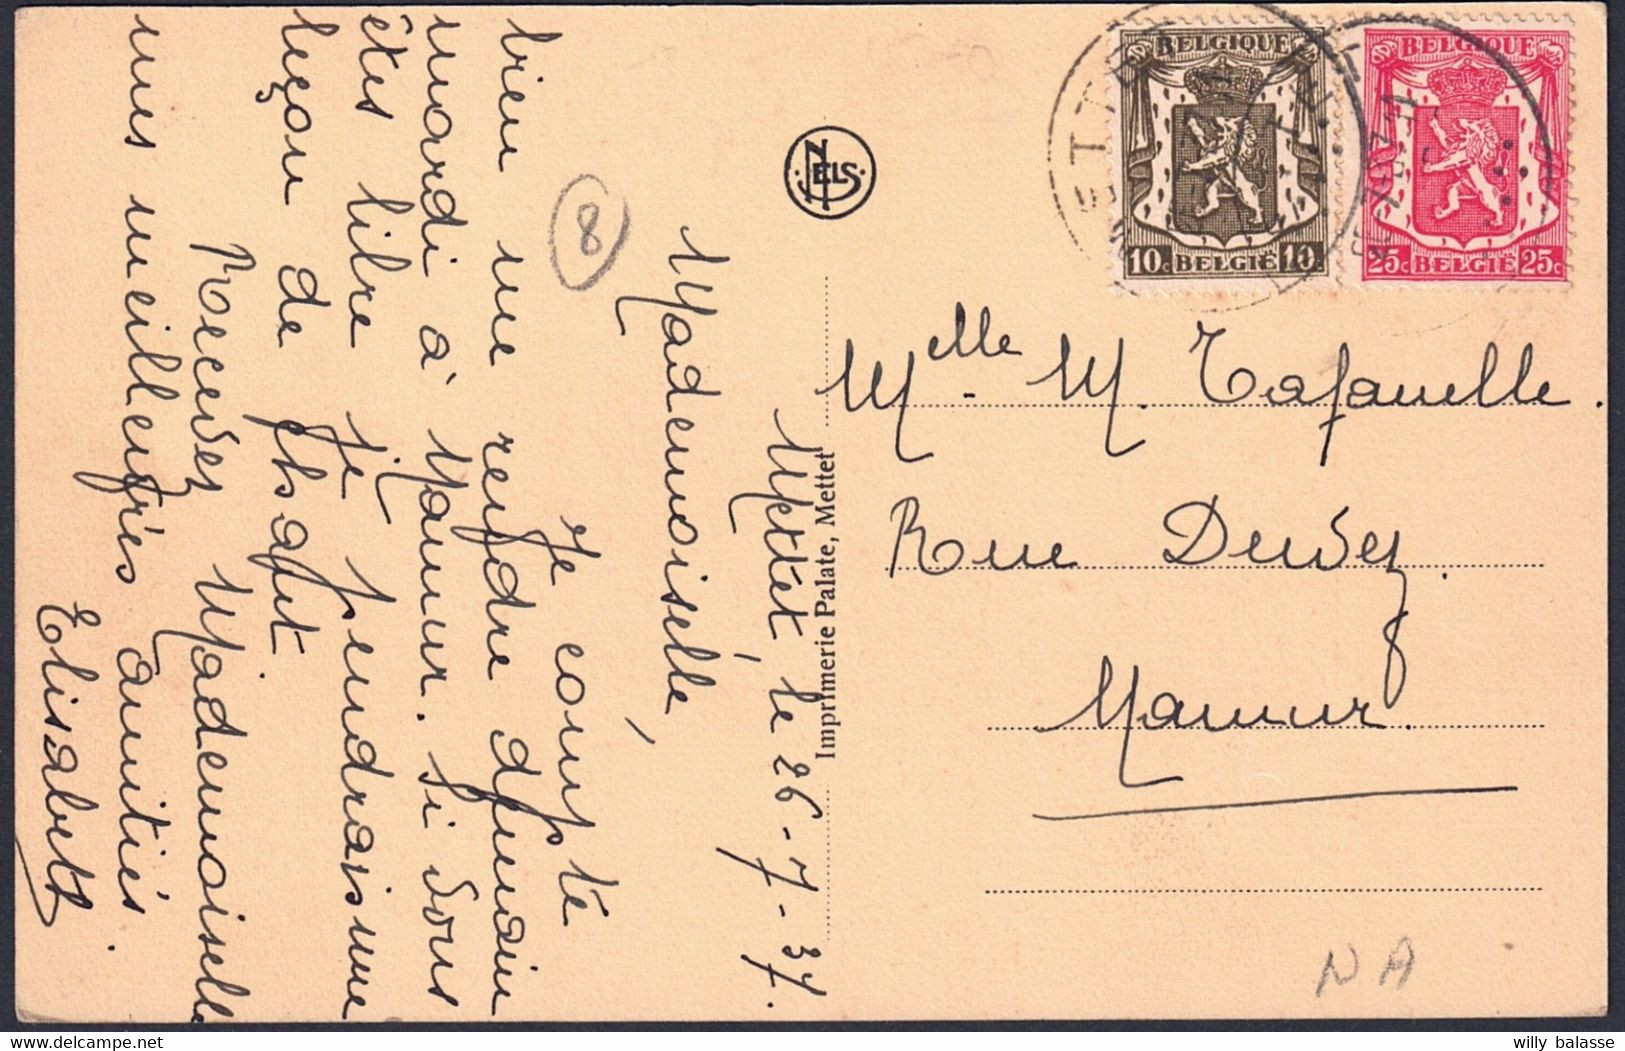 Mettet, le 26-7-37.
Mademoiselle,
Je compte
bien me rendre demain
mardi à Namur. Si vous
êtes libre je prendrais une
leçon de chant
Recevez Mademoiselle
mes meilleures amitiés.
Elisabeth
8
NELS
Imprimerie Palate, Mettet
BELGIQUE
10c BELGIË 10c
BELGIQUE
25c BELGIË 25c
METTET
Melle M. Tafanelle.
Rue Dewez.
Namur.
NA
willy balasse